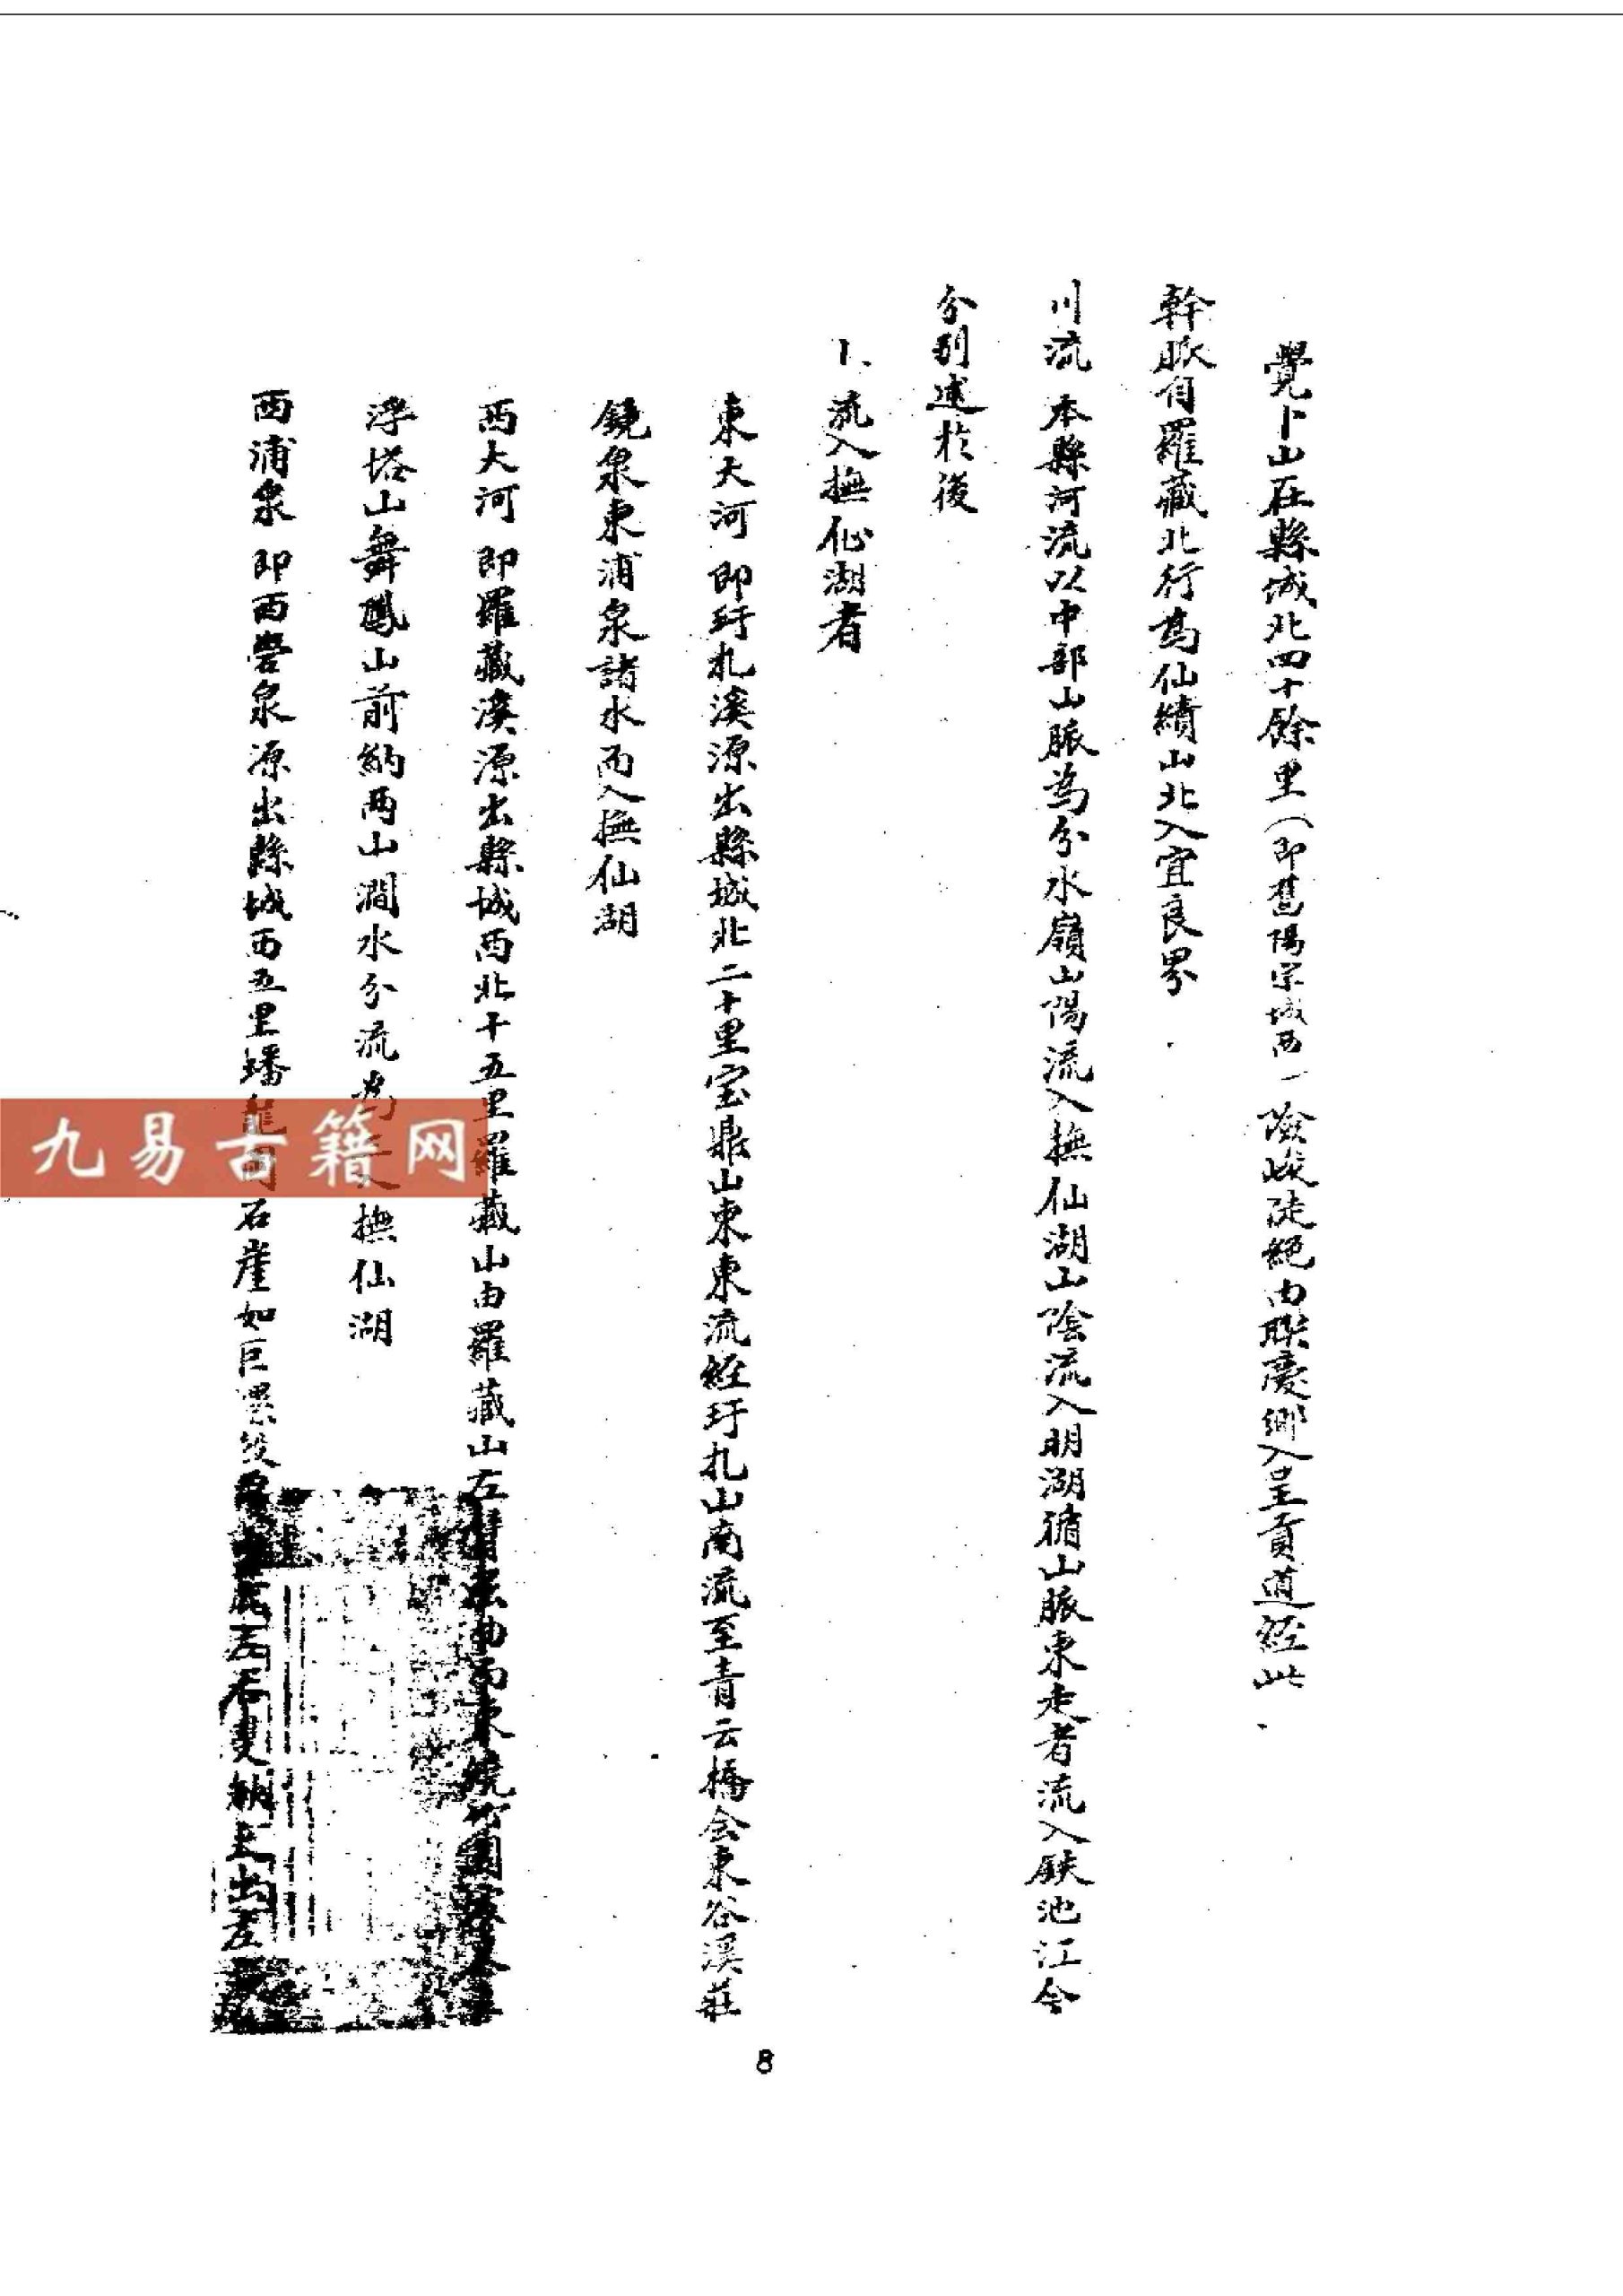 覺卜山在縣城北四十餘里（即舊陽宗城西）險峻陡絕由聯慶鄉入呈貢道經此
幹脈自羅藏北行爲仙績山北入宜良界
川流 本縣河流以中部山脈為分水嶺山陽流入撫仙湖山陰流入明湖循山脈東走者流入鉄池江今
分別述於後
1、流入撫仙湖者
東大河 即玗札溪源出縣城北二十里宝鼎山東東流經玗扎山南流至青云橋会東谷溪莊
鏡泉東浦泉諸水而入撫仙湖
西大河 即羅藏溪源出縣城西北十五里羅藏山由羅藏山左 而東繞竹園
浮塔山舞鳳山前納两山澗水分流為 入撫仙湖
西浦泉 即西營泉源出縣城西五里蟠龍岡石崖如巨 左右 出左
8
九易古籍网